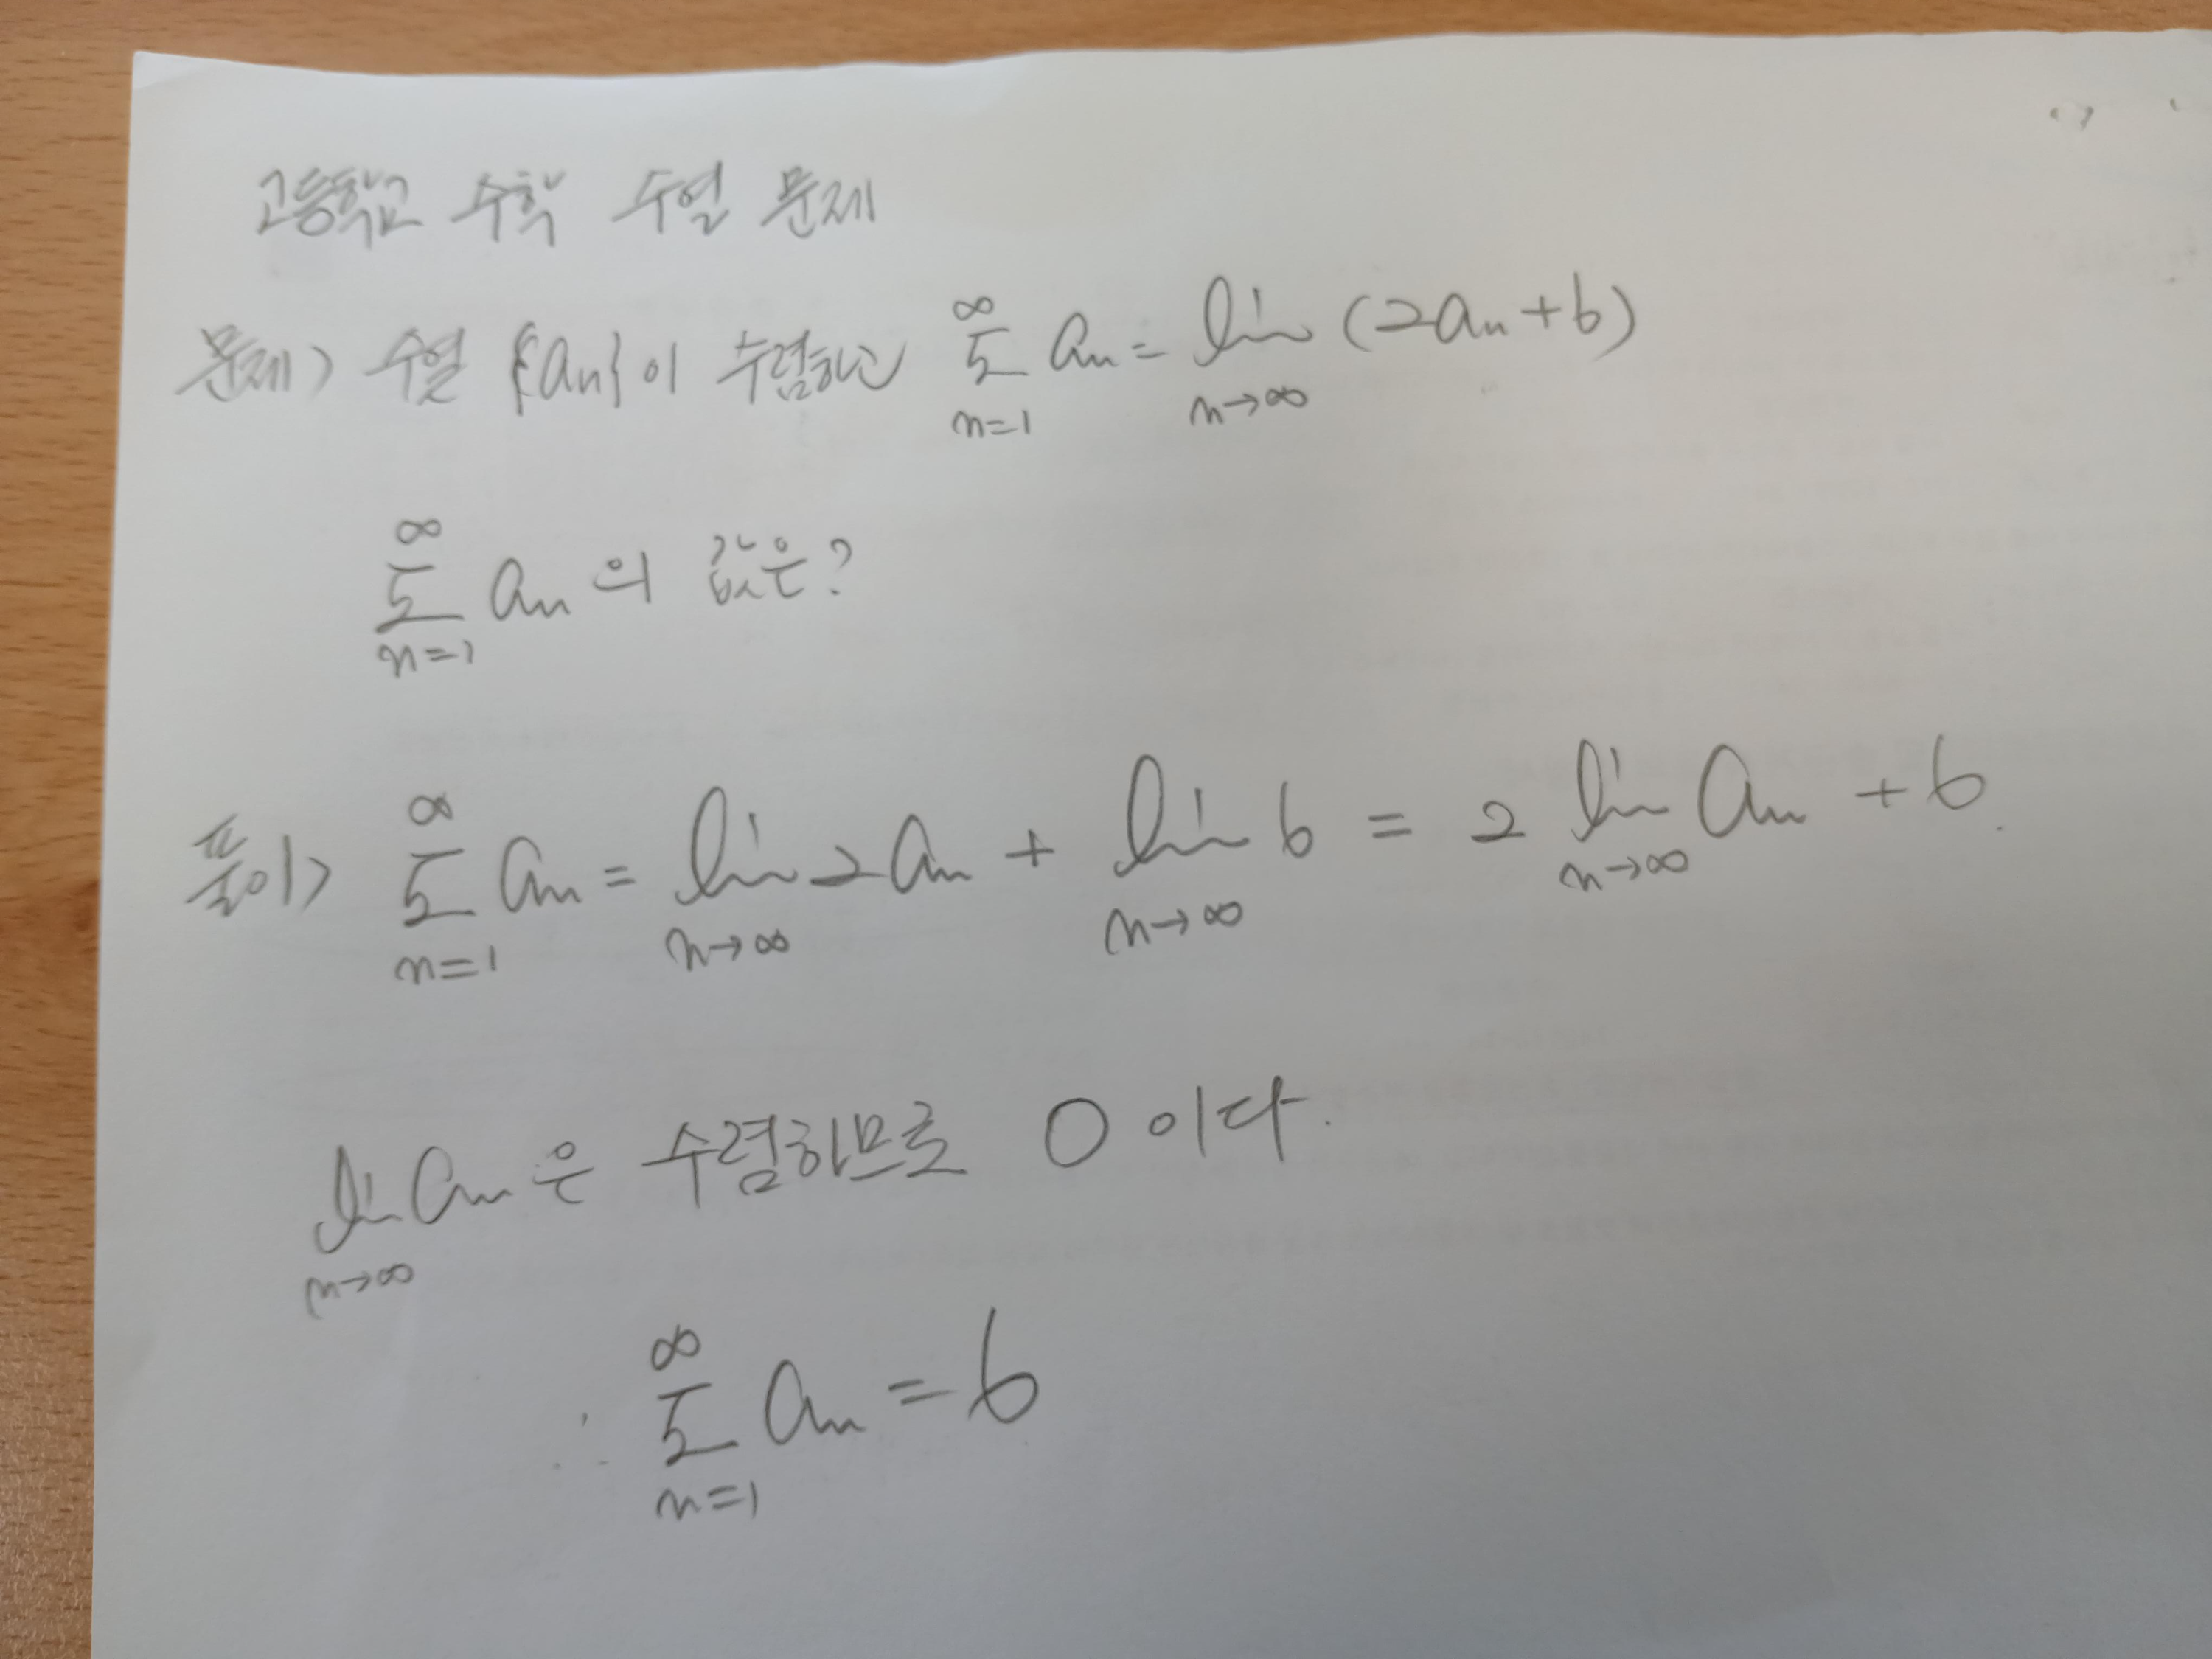 고등학교 수학 수열 문제
문제> 수열 {an}이 수렴하고 ∞∑n=1 an = lim n→∞ (2an+b)
∞∑n=1 an의 값은?
풀이> ∞∑n=1 an = lim n→∞ 2an + lim n→∞ b = 2 lim n→∞ an + b.
lim n→∞ an은 수렴하므로 0이다.
∴ ∞∑n=1 an = b